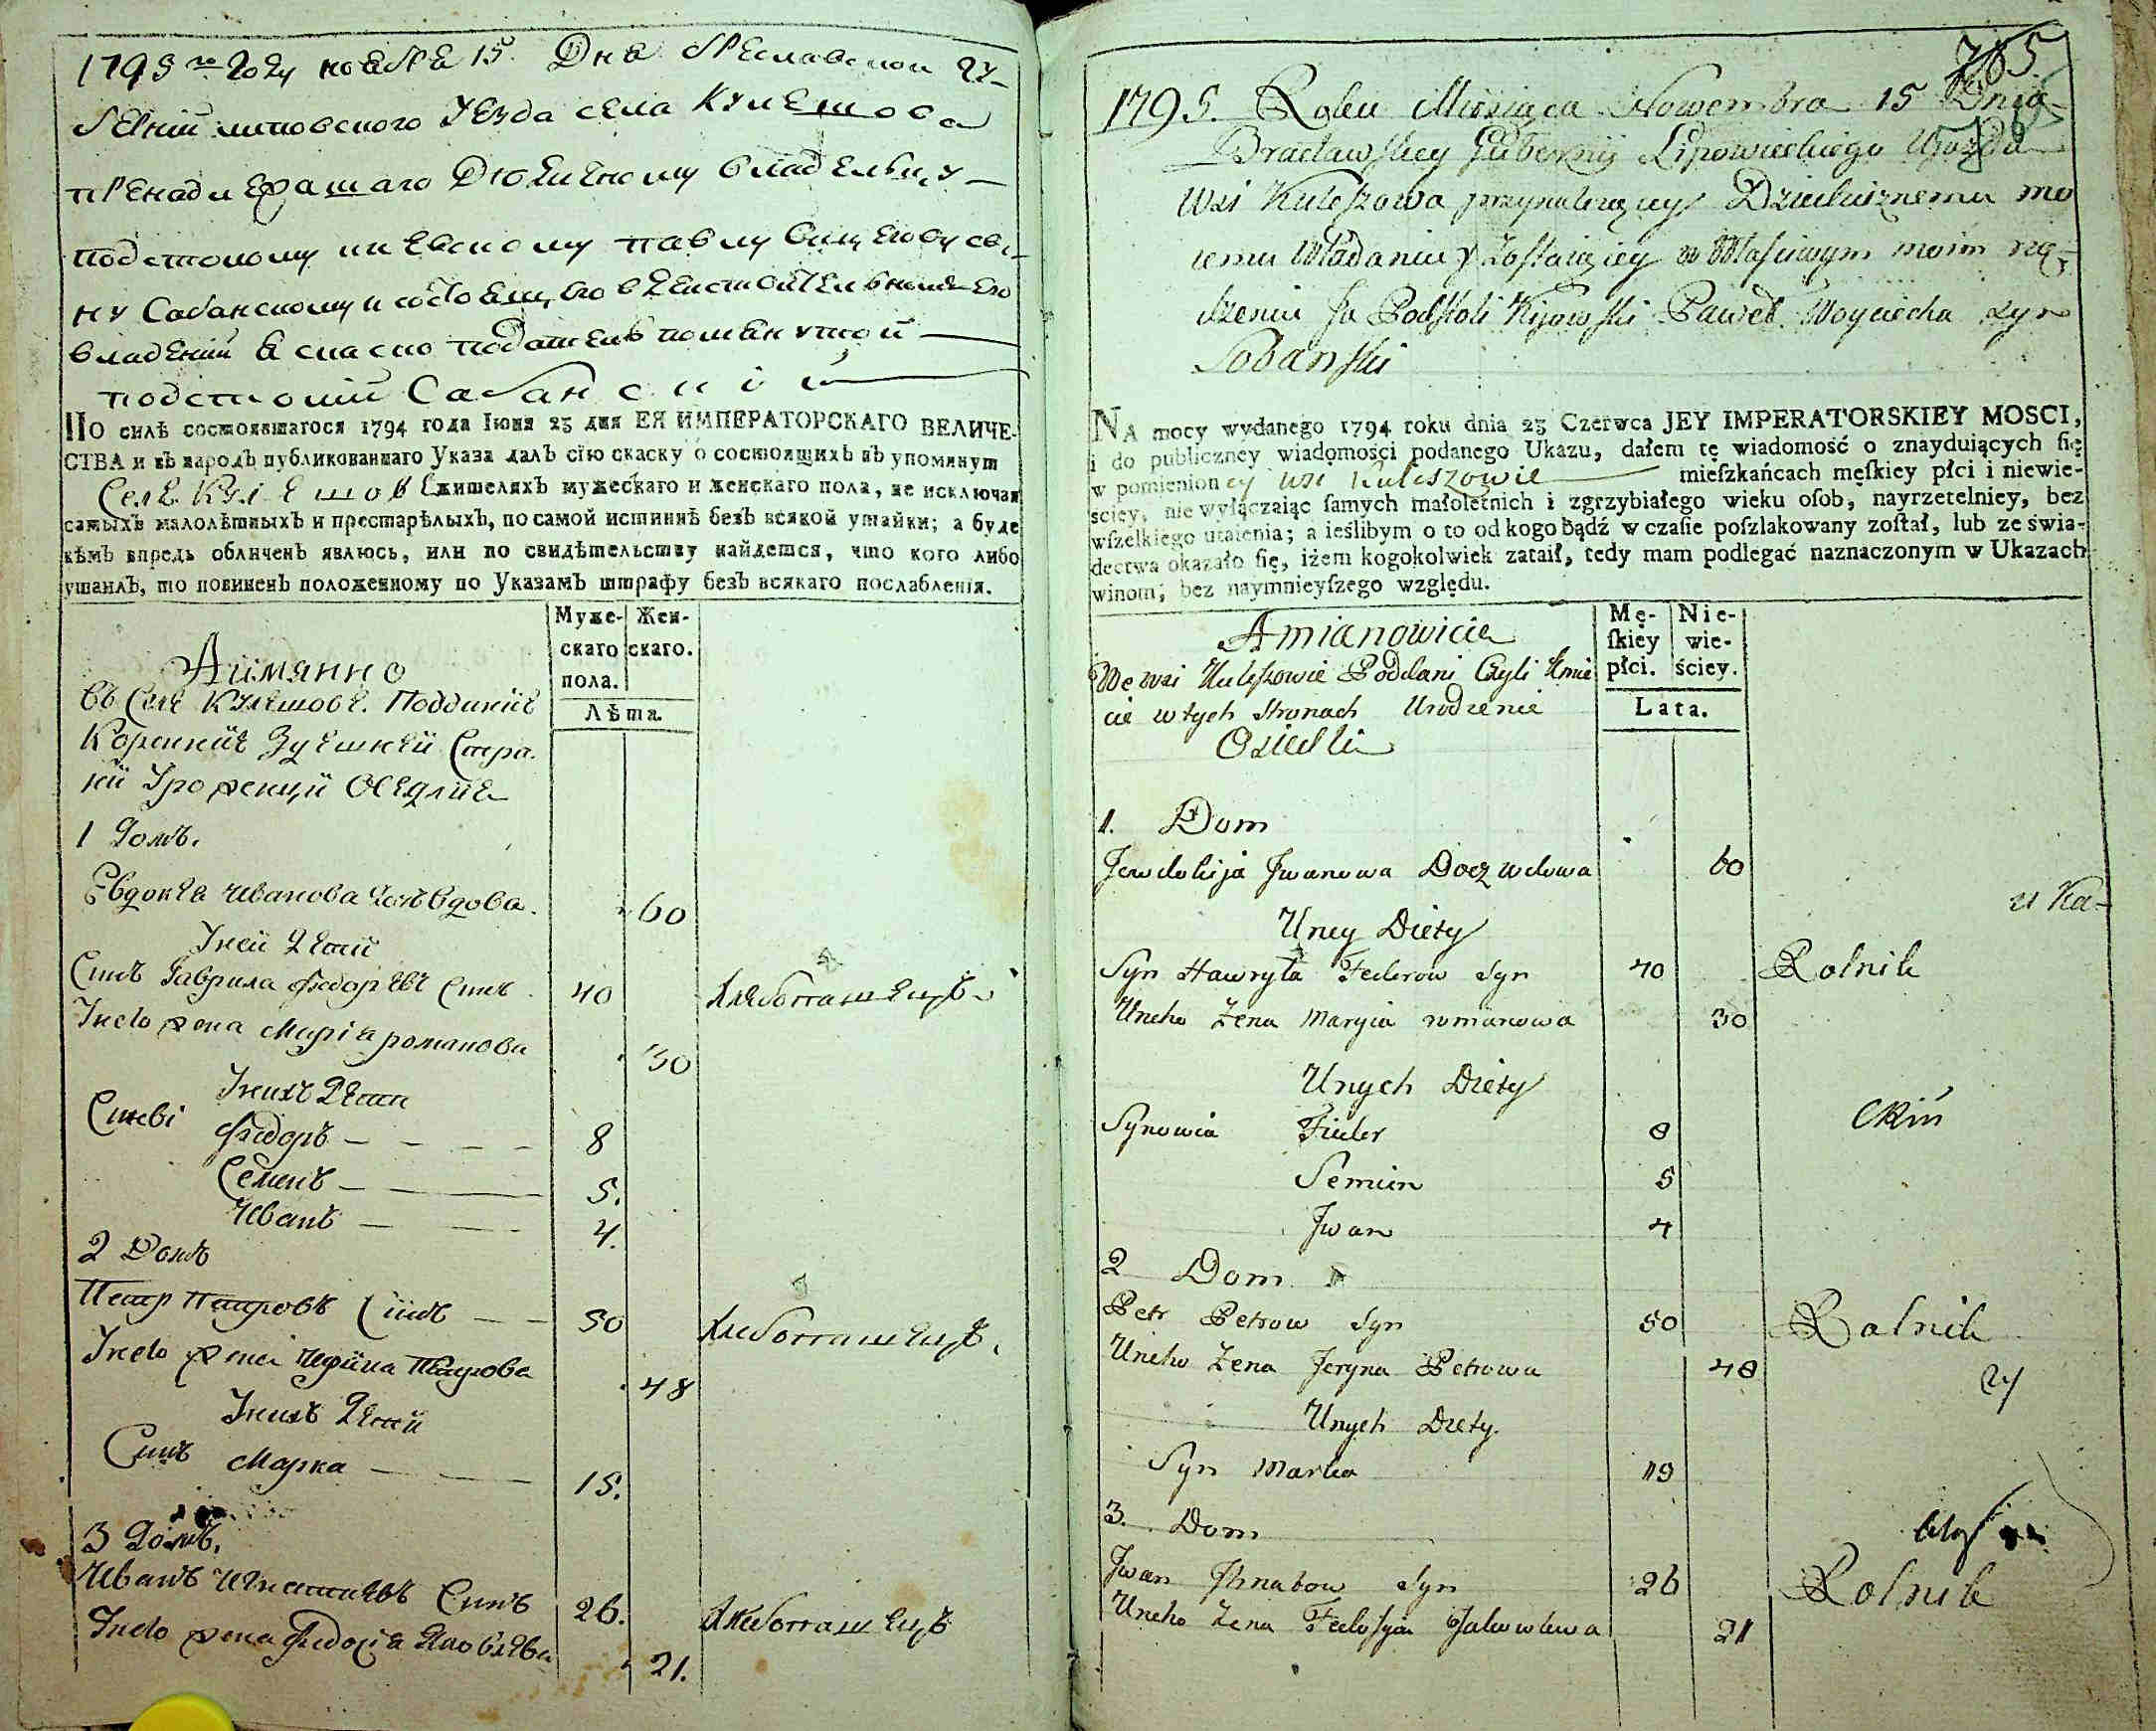 1795 го Году ноября 15. Дня Бреславской гу-
берніи липовского Уезда села Кулешова
принадлежащаго Дюдичному владельцу
подстолому киевскому павлу войцехову сы-
ну Сабанскому и состоящего в деиствителномъ его
владении Я сказко податель помянутой
подстолій Сабанскій
ПО силѣ состоявшагося 1794 года Іюня 23 дня ЕЯ ИМПЕРАТОРСКАГО ВЕЛИЧЕ-
СТВА и въ народъ публикованнаго Указа далъ сію скаску о состоящихъ въ упомянут
Селе Кулешовѣ жителяхъ мужескаго и женскаго пола, не исключая
самыхъ малолѣтныхъ и престарѣлыхъ, по самой истиннѣ безъ всякой утайки; а буде
кѣмъ впредь обличенъ явлюсь, или по свидѣтельству найдется, что кого либо
утаилъ, то повиненъ положенному по Указамъ штрафу безъ всякаго послабленія.
Муже- Жен-
скаго скаго.
пола.
Лѣта
Аимянно
въ Селе Кулешовѣ. Поддание
Коренние Здешней Стра-
ни Уроженци Оседлие
1 Домъ.
Евдокія Иванова дочъ вдова. 60
Уней дети
Синъ Гаврила Федоревъ Синъ 40 Хлебопашецъ.
Унего жена Марія романова 30
Унихъ Дети
Синеві Федоръ 8
Семенъ 5.
Иванъ 4.
2 Домъ
Петр Петровъ Синъ 50 Хлебопашецъ.
Унего жена Ирина Петрова 48
Унихъ Дети
Синъ Марко 19.
3 Домъ.
Иванъ Игнатиевъ Синъ 26. Хлебопашецъ
Унего жена Федосія Яковлева 21.
765
1795. Roku Miesiąca Nowembra 15 Dnia
Bracławskiey Gubernij Lipowieckiego Ujazdu
Wsi Kuleszowa przynalezącey Dziedzicznemu mo
iemu Władaniu y Zostaiącey w Własciwym moim rzą-
dzeniu Ja Podstoli Kijowski Paweł Woyciecha syn
Sobański
NA mocy wydanego 1794 roku dnia 23 Czerwca JEY IMPERATORSKIEY MOSCI,
i do publiczney wiadomości podanego Ukazu, dałem tę wiadomość o znayduiących ſię
w pomienioney wsi Kuleszowie mieſzkańcach męſkiey płci i niewie-
ściey, nie wyłączaiąc ſamych małoletnich i zgrzybiałego wieku oſob, nayrzetelniey, bez
wſzelkiego utaienia; a ieślibym o to od kogo bądź w czaſie poſzlakowany zoſtał, lub ze świa-
dectwa okazało ſię, iżem kogokolwiek zataił, tedy mam podlegać naznaczonym w Ukazach
winom, bez naymnieyſzego względu.
Mę- Nie-
ſkiey wie-
płci. ściey.
Lata.
Amianowicie
We wsi Kuleszowie Poddani Czyli Kmie
cie w tych stronach Urodzenie
Osiedli
1. Dom
Jewdokija Jwanowa Docz wdowa 60
u Ka-
Uney Diety
Syn Hawryła Fedorow Syn 40 Rolnik
Uneho Zena Maryia romanowa 30
Unych Diety
Synowia Fiedor 8
Semien 5
Jwan 4
2 Dom
Petr Petrow Syn 50 Rolnik
Uneho Zena Jeryna Petrowa 48
Unych Diety
Syn Marko 19
3. Dom
Jwan Jhnatow Syn 26 Rolnik
Uneho Zena Fedosyia Jakowlewa 21